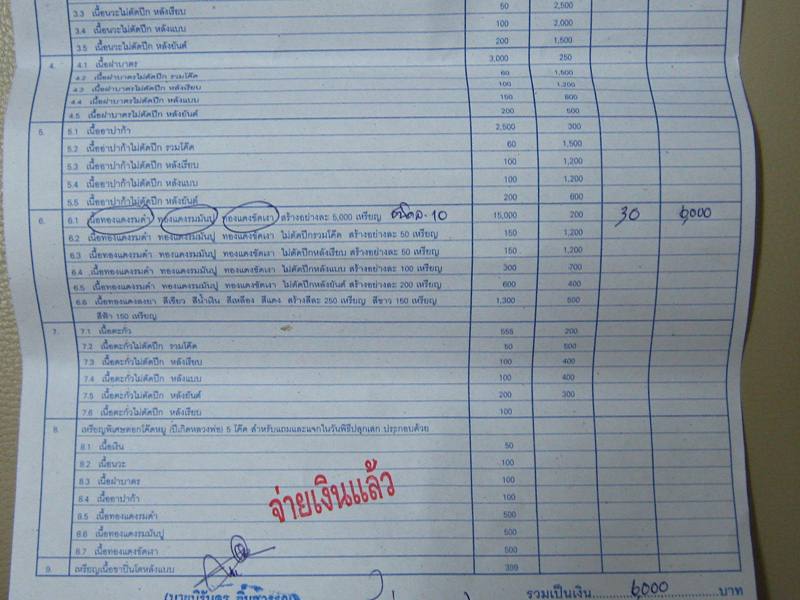 3.3 เนื้อนวะไม่ตัดปีก หลังเรียบ 50 2,500
3.4 เนื้อนวะไม่ตัดปีก หลังแบบ 100 2,000
3.5 เนื้อนวะไม่ตัดปีก หลังยันต์ 200 1,500
4. 4.1 เนื้อฝาบาตร 3,000 250
4.2 เนื้อฝาบาตรไม่ตัดปีก รวมโค๊ต 60 1,500
4.3 เนื้อฝาบาตรไม่ตัดปีก หลังเรียบ 100 1,200
4.4 เนื้อฝาบาตรไม่ตัดปีก หลังแบบ 150 800
4.5 เนื้อฝาบาตรไม่ตัดปีก หลังยันต์ 200 500
5. 5.1 เนื้ออาปาก้า 2,500 300
5.2 เนื้ออาปาก้าไม่ตัดปีก รวมโค๊ต 60 1,500
5.3 เนื้ออาปาก้าไม่ตัดปีก หลังเรียบ 100 1,200
5.4 เนื้ออาปาก้าไม่ตัดปีก หลังแบบ 100 1,200
5.5 เนื้ออาปาก้าไม่ตัดปีก หลังยันต์ 200 600
6. 6.1 เนื้อทองแดงรมดำ ทองแดงรมมันปู ทองแดงขัดเงา สร้างอย่างละ 5,000 เหรียญ ชนิดละ 10 15,000 200 30 6,000
6.2 เนื้อทองแดงรมดำ ทองแดงรมมันปู ทองแดงขัดเงา ไม่ตัดปีกรวมโค๊ต สร้างอย่างละ 50 เหรียญ 150 1,200
6.3 เนื้อทองแดงรมดำ ทองแดงรมมันปู ทองแดงขัดเงา ไม่ตัดปีกหลังเรียบ สร้างอย่างละ 50 เหรียญ 150 1,200
6.4 เนื้อทองแดงรมดำ ทองแดงรมมันปู ทองแดงขัดเงา ไม่ตัดปีกหลังแบบ สร้างอย่างละ 100 เหรียญ 300 700
6.5 เนื้อทองแดงรมดำ ทองแดงรมมันปู ทองแดงขัดเงา ไม่ตัดปีกหลังยันต์ สร้างอย่างละ 200 เหรียญ 600 400
6.6 เนื้อทองแดงลงยา สีเขียว สีน้ำเงิน สีเหลือง สีแดง สร้างสีละ 250 เหรียญ สีขาว 150 เหรียญ 1,300 500
สีฟ้า 150 เหรียญ
7. 7.1 เนื้อตะกั่ว 555 200
7.2 เนื้อตะกั่วไม่ตัดปีก รวมโค๊ต 50 500
7.3 เนื้อตะกั่วไม่ตัดปีก หลังเรียบ 100 400
7.4 เนื้อตะกั่วไม่ตัดปีก หลังแบบ 100 400
7.5 เนื้อตะกั่วไม่ตัดปีก หลังยันต์ 200 300
7.6 เนื้อตะกั่วไม่ตัดปีก หลังเรียบ 100
8. เหรียญพิเศษตอกโค๊ตหมู (ปีเกิดหลวงพ่อ) 5 โค๊ต สำหรับแถมและแจกในวันพิธีปลุกเสก ประกอบด้วย
8.1 เนื้อเงิน 50
8.2 เนื้อนวะ 100
8.3 เนื้อฝาบาตร 100
8.4 เนื้ออาปาก้า 100
8.5 เนื้อทองแดงรมดำ 500
8.6 เนื้อทองแดงรมมันปู 500
8.7 เนื้อทองแดงขัดเงา 500
จ่ายเงินแล้ว
9. เหรียญเนื้อชาปินโตหลังแบบ 399
รวมเป็นเงิน 6,000 บาท